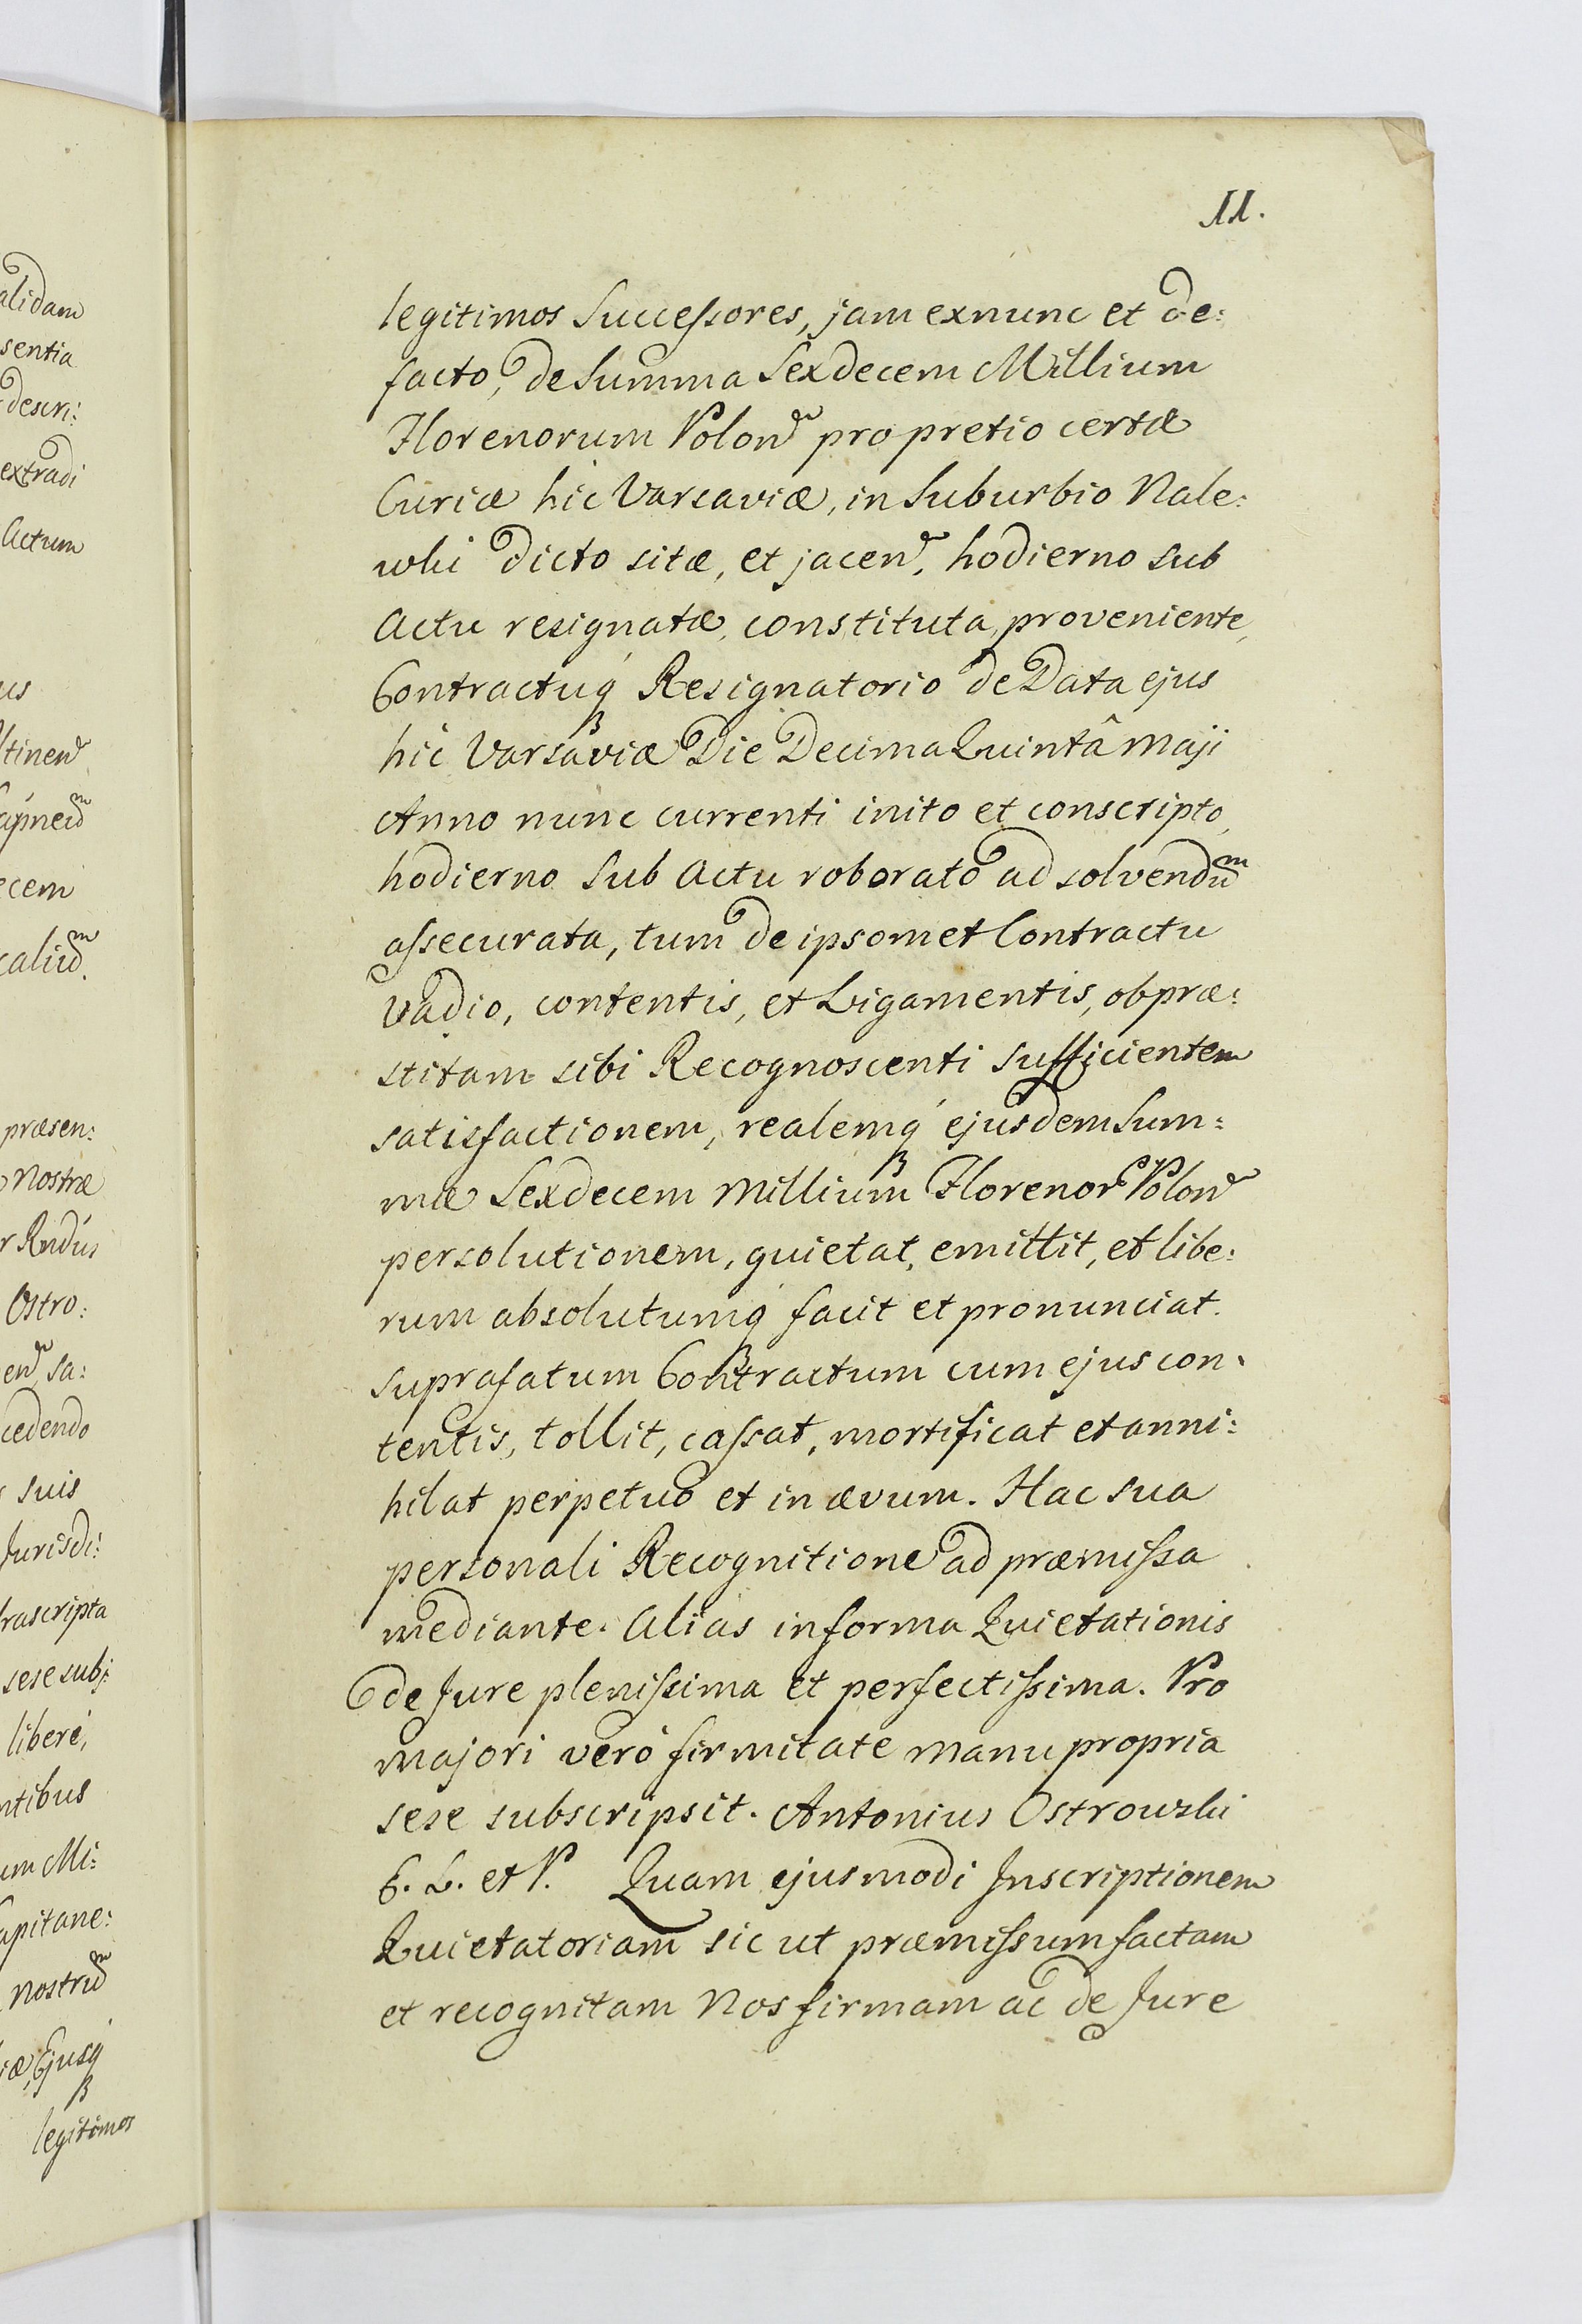 11.
legitimos Successores, jam exnunc et de:
facto, de Summa Sexdecem Millium
Florenorum Polon pro pretio certæ
Curiæ hic Varsaviæ, in Suburbio Nale:
wki dicto sitæ, et jacen, hodierno sub
Actu resignatæ, constituta, proveniente,
Contractuq́ Resignatorio de Data ejus
hic Varsaviæ Die Decima Quintâ Maji
Anno nunc currenti inito et conscripto,
hodierno Sub Actu roborato ad solvendum
assecurata, tum de ipsomet Contractu
Vadio, contentis, et Ligamentis, ob præ:
stitam sibi Recognoscenti sufficientem
satisfactionem, realemq́ ejusdem Sum:
mæ Sexdecem Millium Florenor Polon
persolutionem, quietat, emittit, et libe:
rum absolutumq́ facit et pronunciat.
suprafatum Contractum cum ejus con:
tentis, tollit, cassat, mortificat et anni:
hilat perpetuo et in ævum. Hac sua
personali Recognitione ad præmissa
mediante. Alias in forma Quietationis
de Jure plenissima et perfectissima. Pro
majori verò firmitate manu propria
sese subscripsit. Antonius Ostrowski
E. L. et P. Quam ejusmodi Inscriptionem
Quietatoriam sic ut præmissum factam
et recognitam Nos firmam ac de Jure
alidam
sentia
descri:
extradi
Actum
us
tinen
ecem
præsen:
Nostræ
Ostro:
en, sa:
cedendo
suis
Jurisdi:
frascripta
sese subj:
liberé,
ntibus
um Mi:
apitane:
Nostrum
iæ, Ejusq́
legitimos